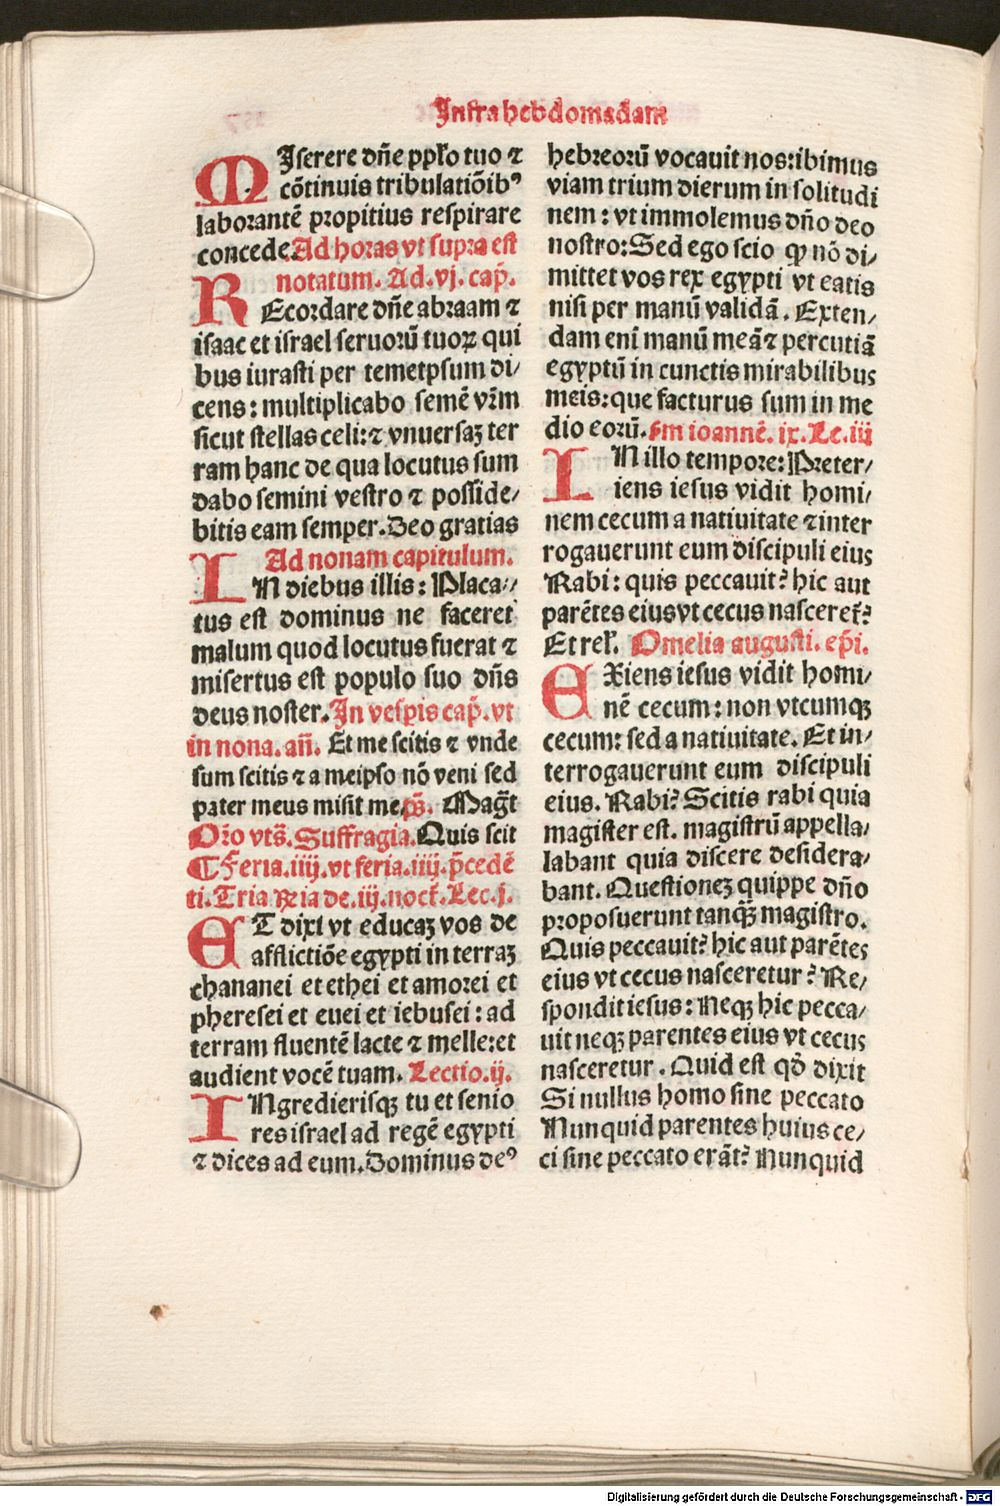 Infra hebdomadam
MIserere dn̄e pplo tuo ⁊
cōtinuis tribulatiōibꝰ
laborantē propitius respirare
concede. Ad horas vt supra est
notatum. Ad. vj. cap̄.
REcordare dn̄e abraam ⁊
isaac et israel seruorū tuoꝝ qui
bus iurasti per temetpsum di/
cens: multiplicabo semē vr̄m
sicut stellas celi: ⁊ vnuersaꝫ ter
ram hanc de qua locutus sum
dabo semini vestro ⁊ posside/
bitis eam semper. Deo gratias
Ad nonam capitulum.
IN diebus illis: Placa//
tus est dominus ne faceret
malum quod locutus fuerat ⁊
misertus est populo suo dn̄s
deus noster. In vesp̱is cap̄. vt
in nona. an̄. Et me scitis ⁊ vnde
sum scitis ⁊ a meipso nō veni sed
pater meus misit me. p̄s. Mag̅t
Or̄o vts̄. Suffragia. Quis scit
¶ Feria. iiij. vt feria. iiij. p̄cedē
ti. Tria ℞ia de. iij. noct̄. Lec. j.
ET dixi vt educaꝫ vos de
afflictiōe egypti in terraꝫ
chananei et ethei et amorei et
pheresei et euei et iebusei: ad
terram fluentē lacte ⁊ melle: et
audient vocē tuam. Lectio. ij.
INgredierisqꝫ tu et senio
res israel ad regē egypti
⁊ dices ad eum. Dominus deꝰ
hebreorū vocauit nos: ibimus
viam trium dierum in solitudi
nem: vt immolemus dn̄o deo
nostro: Sed ego scio ꝙ nō di/
mittet vos rex egypti vt eatis
nisi per manū validā. Exten/
dam enī manū meā ⁊ percutiā
egyptū in cunctis mirabilibus
meis: que facturus sum in me
dio eorū. Sm ioannē. ix. Le. iij
IN illo tempore: Preter/
iens iesus vidit homi/
nem cecum a natiuitate ⁊ inter
rogauerunt eum discipuli eius
Rabi: quis peccauit? hic aut
parētes eius vt cecus nasceret̄?
Et rel̄. Omelia augusti. ep̄i.
EXiens iesus vidit homi/
nē cecum: non vtcumqꝫ
cecum: sed a natiuitate. Et in/
terrogauerunt eum discipuli
eius. Rabi? Scitis rabi quia
magister est. magistrū appella/
labant quia discere desidera/
bant. Questioneꝫ quippe dn̄o
proposuerunt tanqꝫ̄ magistro.
Quis peccauit? hic aut parētes
eius vt cecus nasceretur? Re/
spondit iesus: Neqꝫ hic pecca/
uit neqꝫ parentes eius vt cecus
nasceretur. Quid est qd̄ dixit
Si nullus homo sine peccato
Nunquid parentes huius ce/
ci sine peccato erāt? Nunquid
Digitalisierung gefördert durch die Deutsche Forschungsgemeinschaft - DFG